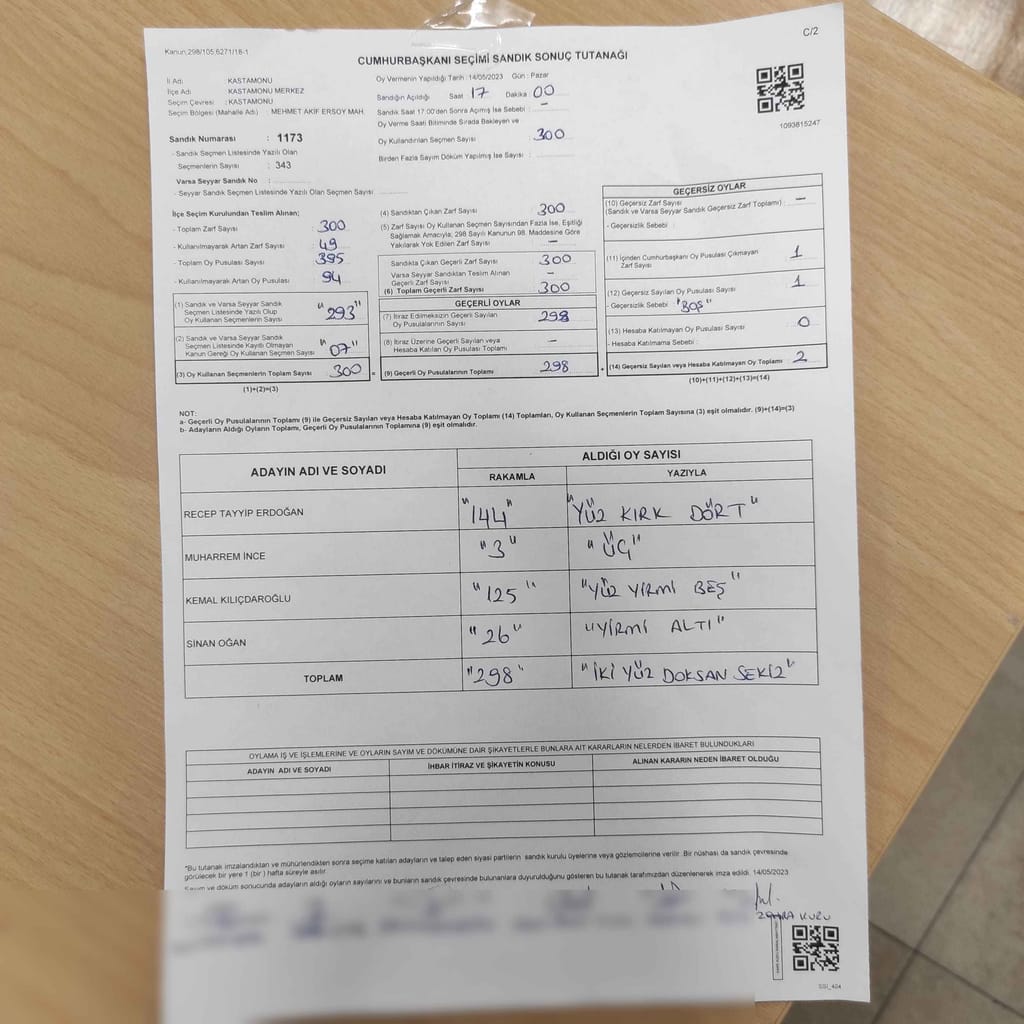 C/2
Kanun, 298/105,6271/18-1
CUMHURBAŞKANI SEÇİMİ SANDIK SONUÇ TUTANAĞI
İl Adı : KASTAMONU
İlçe Adı : KASTAMONU MERKEZ
Seçim Çevresi : KASTAMONU
Seçim Bölgesi (Mahalle Adı) : MEHMET AKİF ERSOY MAH.
Sandık Numarası : 1173
- Sandık Seçmen Listesinde Yazılı Olan
Seçmenlerin Sayısı : 343
Varsa Seyyar Sandık No :
- Seyyar Sandık Seçmen Listesinde Yazılı Olan Seçmen Sayısı:
Oy Vermenin Yapıldığı Tarih : 14/05/2023 Gün : Pazar
Sandığın Açıldığı Saat 17 Dakika 00
Sandık Saat 17:00'den Sonra Açımış İse Sebebi : -
Oy Verme Saati Bitiminde Sırada Bekleyen ve
Oy Kullandırılan Seçmen Sayısı : 300
Birden Fazla Sayım Döküm Yapılmış İse Sayısı :
1093815247
İlçe Seçim Kurulundan Teslim Alınan;
- Toplam Zarf Sayısı : 300
- Kullanılmayarak Artan Zarf Sayısı : 49
- Toplam Oy Pusulası Sayısı : 395
- Kullanılmayarak Artan Oy Pusulası : 94
(1) Sandık ve Varsa Seyyar Sandık
Seçmen Listesinde Yazılı Olup
Oy Kullanan Seçmenlerin Sayısı "293"
(2) Sandık ve Varsa Seyyar Sandık
Seçmen Listesinde Kayıtlı Olmayan
Kanun Gereği Oy Kullanan Seçmen Sayısı "07"
(3) Oy Kullanan Seçmenlerin Toplam Sayısı 300 =
(1)+(2)=(3)
(4) Sandıktan Çıkan Zarf Sayısı : 300
(5) Zarf Sayısı Oy Kullanan Seçmen Sayısından Fazla İse, Eşitliği
Sağlamak Amacıyla, 298 Sayılı Kanunun 98. Maddesine Göre
Yakılarak Yok Edilen Zarf Sayısı : -
Sandıkta Çıkan Geçerli Zarf Sayısı : 300
Varsa Seyyar Sandıktan Teslim Alınan
Geçerli Zarf Sayısı : -
(6) Toplam Geçerli Zarf Sayısı : 300
GEÇERLİ OYLAR
(7) İtiraz Edilmeksizin Geçerli Sayılan
Oy Pusulalarının Sayısı : 298
(8) İtiraz Üzerine Geçerli Sayılan veya
Hesaba Katılan Oy Pusulası Toplamı : -
(9) Geçerli Oy Pusulalarının Toplamı 298 +
GEÇERSİZ OYLAR
(10) Geçersiz Zarf Sayısı
(Sandık ve Varsa Seyyar Sandık Geçersiz Zarf Toplamı) : -
- Geçersizlik Sebebi :
(11) İçinden Cumhurbaşkanı Oy Pusulası Çıkmayan
Zarf Sayısı : 1
(12) Geçersiz Sayılan Oy Pusulası Sayısı : 1
- Geçersizlik Sebebi : "BOŞ"
(13) Hesaba Katılmayan Oy Pusulası Sayısı : 0
- Hesaba Katılmama Sebebi :
(14) Geçersiz Sayılan veya Hesaba Katılmayan Oy Toplamı : 2
(10)+(11)+(12)+(13)=(14)
NOT:
a- Geçerli Oy Pusulalarının Toplamı (9) ile Geçersiz Sayılan veya Hesaba Katılmayan Oy Toplamı (14) Toplamları, Oy Kullanan Seçmenlerin Toplam Sayısına (3) eşit olmalıdır. (9)+(14)=(3)
b- Adayların Aldığı Oyların Toplamı, Geçerli Oy Pusulalarının Toplamına (9) eşit olmalıdır.
ADAYIN ADI VE SOYADI
ALDIĞI OY SAYISI
RAKAMLA YAZIYLA
RECEP TAYYİP ERDOĞAN "144" "YÜZ KIRK DÖRT"
MUHARREM İNCE "3" "ÜÇ"
KEMAL KILIÇDAROĞLU "125" "YÜZ YİRMİ BEŞ"
SİNAN OĞAN "26" "YİRMİ ALTI"
TOPLAM "298" "İKİ YÜZ DOKSAN SEKİZ"
OYLAMA İŞ VE İŞLEMLERİNE VE OYLARIN SAYIM VE DÖKÜMÜNE DAİR ŞİKAYETLERLE BUNLARA AİT KARARLARIN NELERDEN İBARET BULUNDUKLARI
ADAYIN ADI VE SOYADI İHBAR İTİRAZ VE ŞİKAYETİN KONUSU ALINAN KARARIN NEDEN İBARET OLDUĞU
"Bu tutanak imzalandıktan ve mühürlendikten sonra seçime katılan adayların ve talep eden siyasi partilerin sandık kurulu üyelerine veya gözlemcilerine verilir. Bir nüshası da sandık çevresinde
görülecek bir yere 1 (bir) hafta süreyle asılır.
Sayım ve döküm sonucunda adayların aldığı oyların sayılarını ve bunların sandık çevresinde bulunanlara duyurulduğunu gösteren bu tutanak tarafımızdan düzenlenerek imza edildi. 14/05/2023
ZEHRA KURU
SSI_404